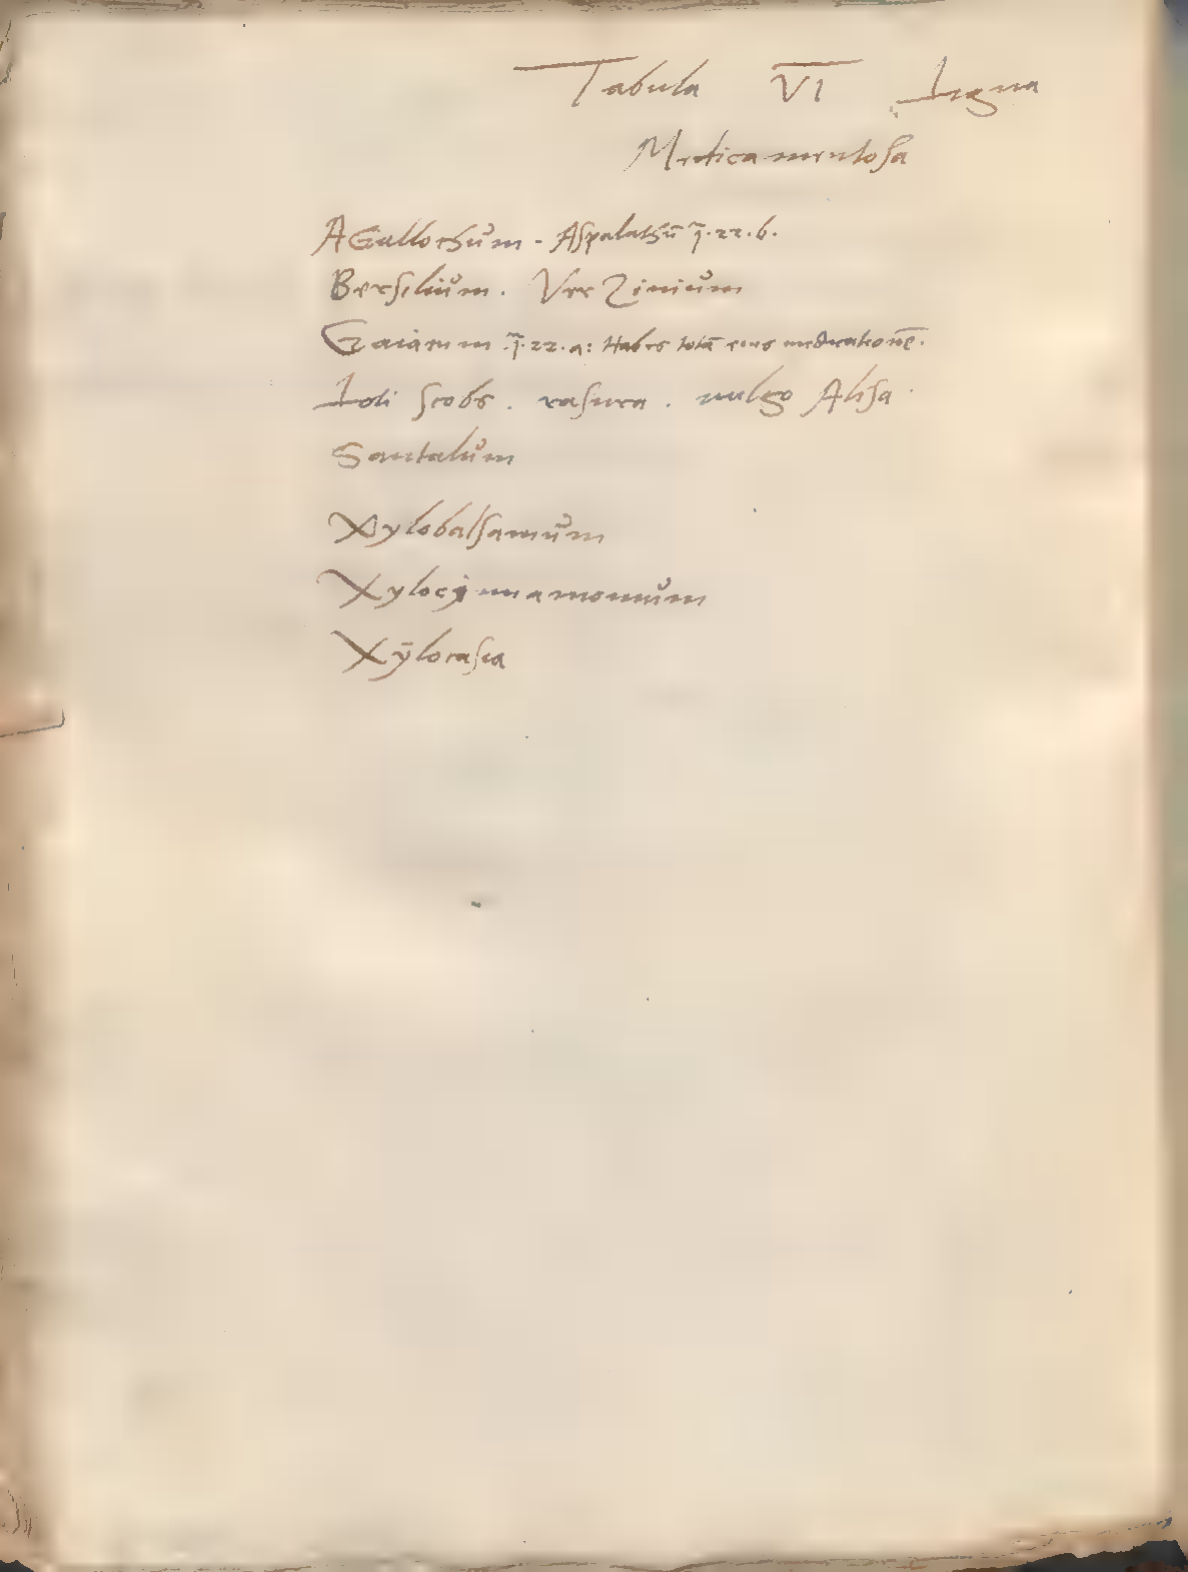 Tabula VI Ligna
Medicamentosa
AGallochum - Aspalathū q̄. 22. b.
Bersilium . VerZinium
Gaiacum . q̄. 22. a: Habes totā eius medicationē.
Loti scobs . rasura . vulgo Alisa .
Santalum
Xylobalsamum
Xylocynnamomum
Xÿlocasia